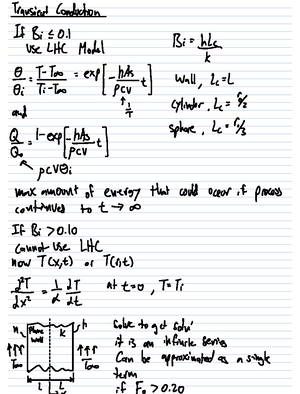 Transient Conduction
If Bi ≤ 0.1
Use LHC Model
Bi = hLc/k
θ/θi = T-T∞/Ti-T∞ = exp[-hAs/ρcV t]
↑ 1/τ
Wall, Lc=L
Cylinder, Lc = r/2
Sphere, Lc = r/3
and
Q/Qo = 1-exp[-hAs/ρcV t]
ρcVθi
max amount of energy that could occur if process
continues to t → ∞
If Bi > 0.10
Cannot use LHC
now T(x,t) or T(r,t)
d²T/dx² = 1/α dT/dt
At t=0, T=Ti
h
Plane
wall
k
h
T∞
T∞
L
L
solve to get soln'
it is an infinite series
Can be approximated as a single
term
if Fo > 0.20